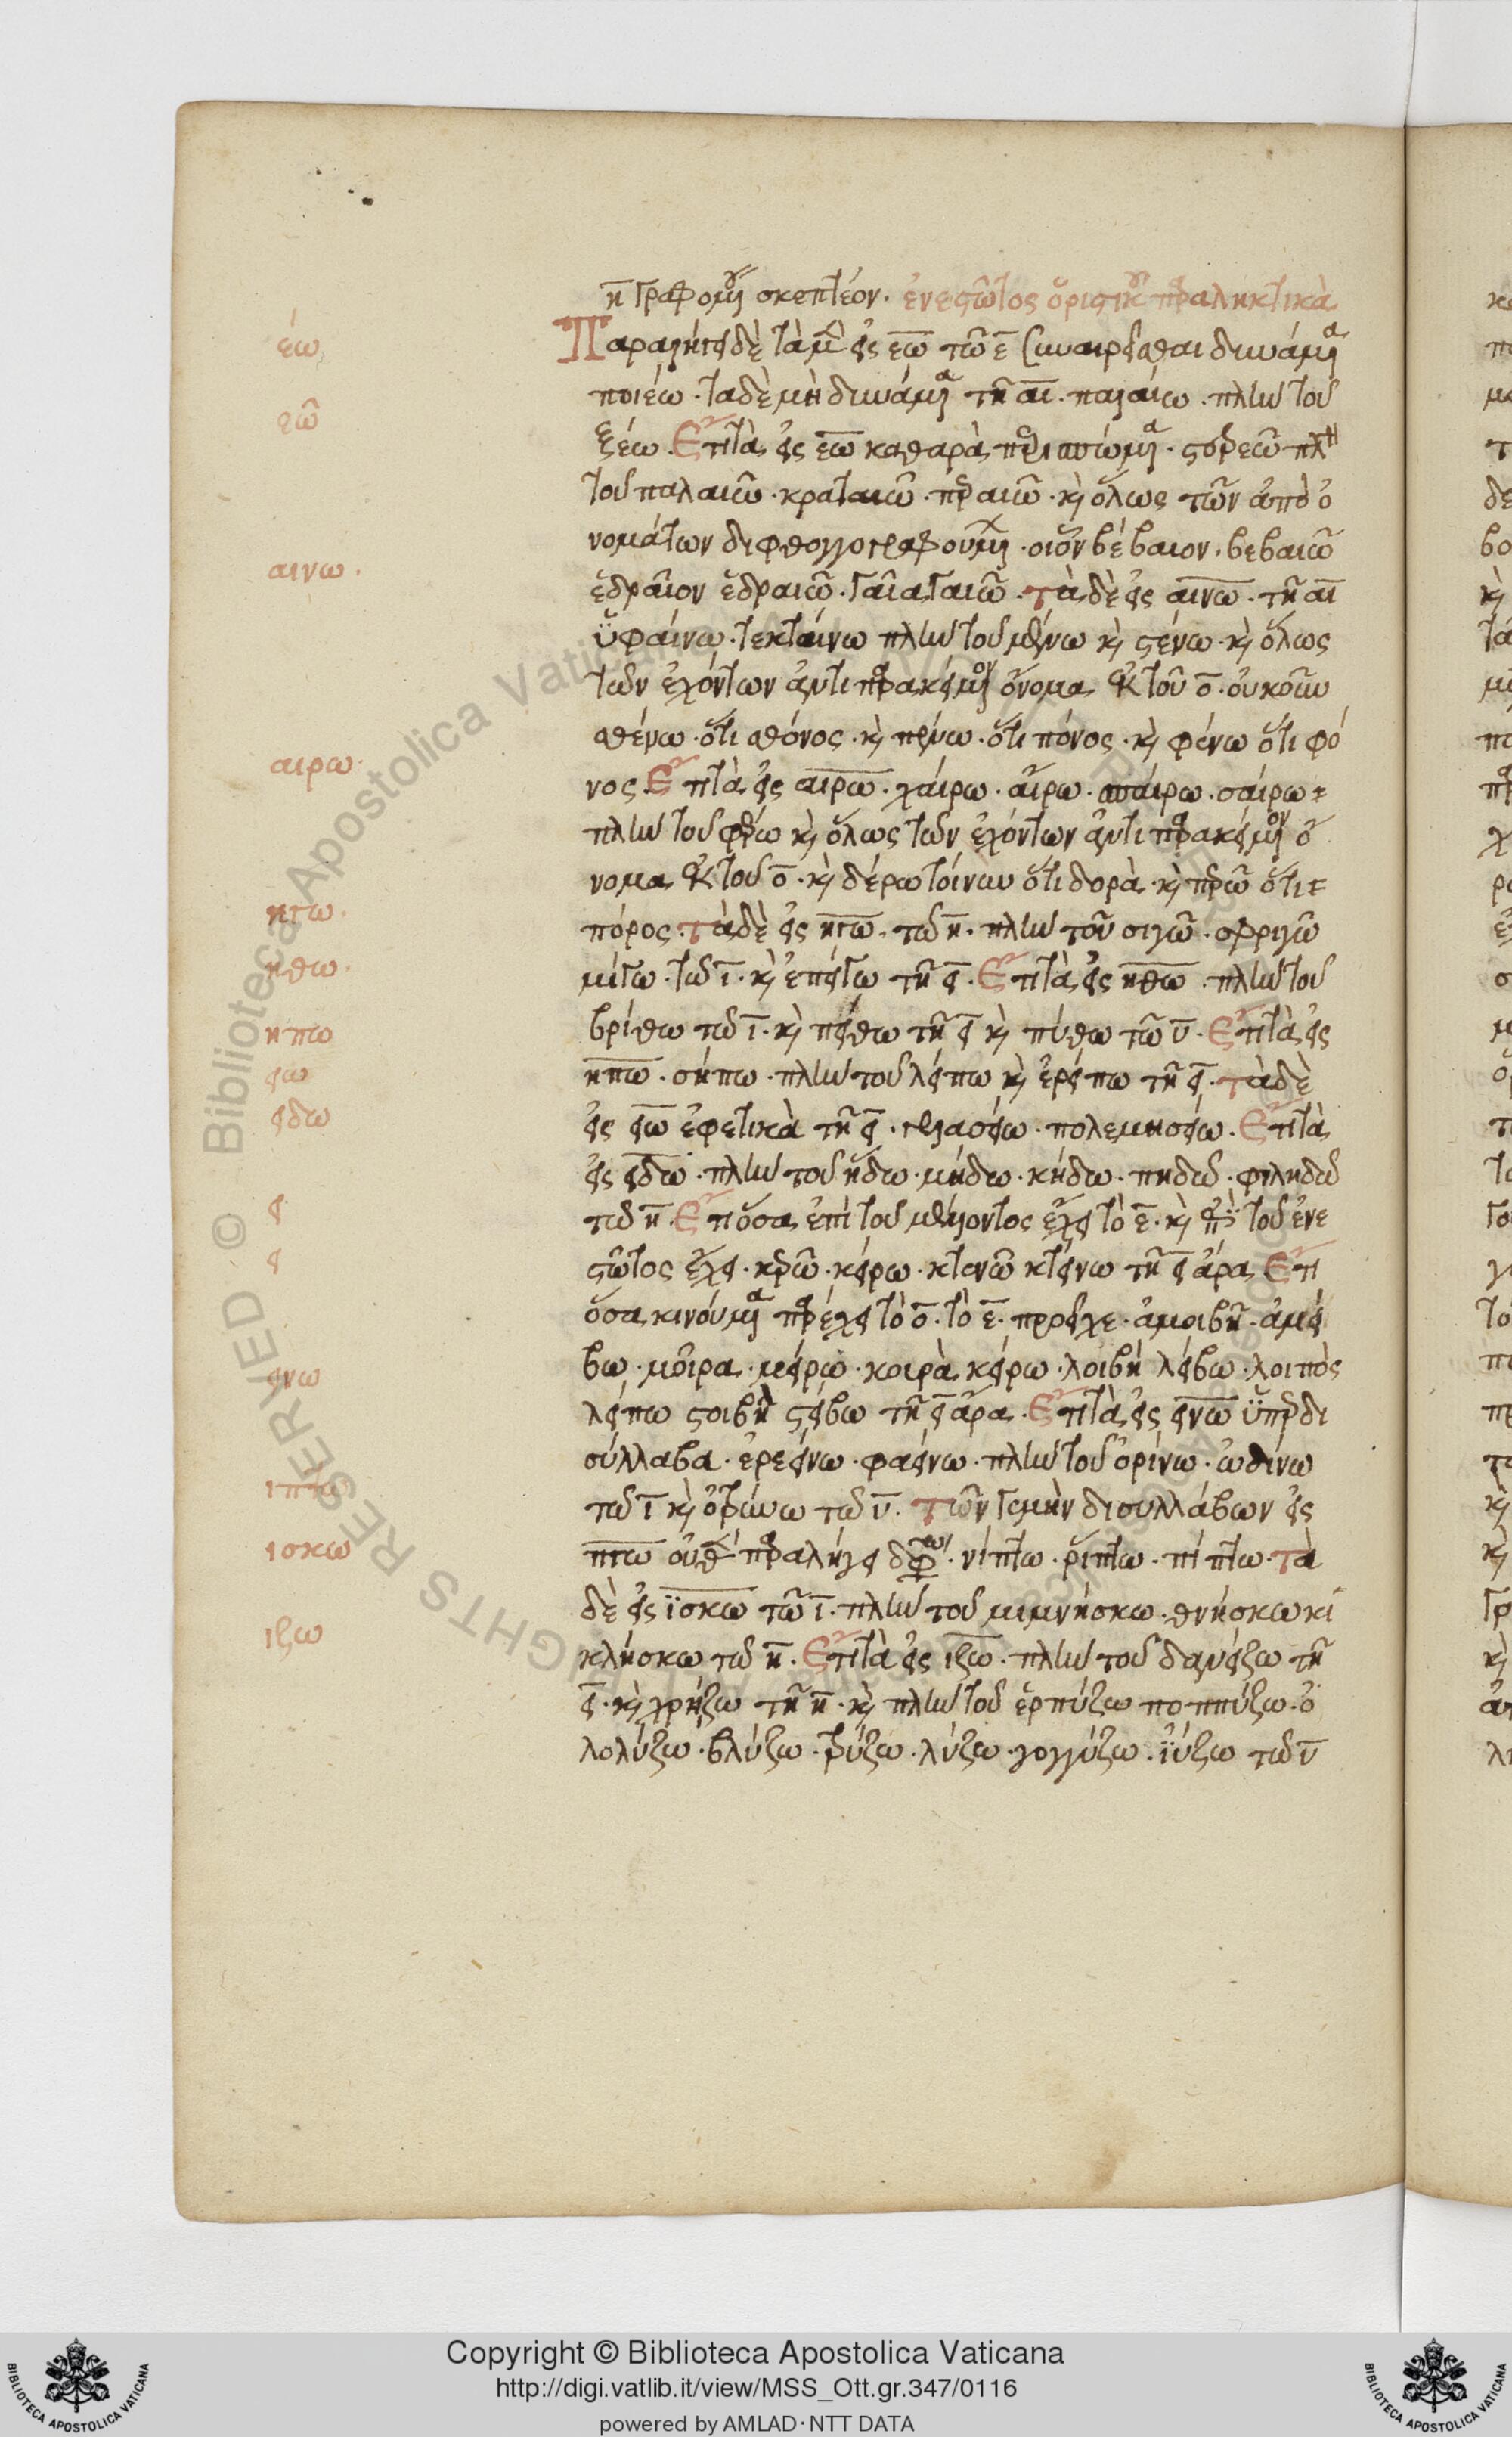 η γραφομένου σκεπτέον· ἐνεστῶτος ὁριστικοῦ παραληκτικὰ
Παραλήγει δὲ τὰ μὲν εἰς εω τῷ ε συναιρεῖσθαι δυνάμενα
ποιέω· τὰ δὲ μὴ δυνάμενα τῇ αι· παλαίω· πλὴν τοῦ
ξέω· Ἔτι τὰ εἰς εω καθαρὰ περισπώμενα· στερεῶ πλὴν
τοῦ παλαιῶ· κραταιῶ· περαιῶ· κὶ ὅλως τῶν ἀπὸ ὀ
νομάτων διφθογγογραφουμένων· οἷον βέβαιον· βεβαιῶ
ἑδραῖον ἑδραιῶ· γαῖα γαιῶ· τὰ δὲ εἰς αινω· τῇ αι
ὑφαίνω· τεκταίνω πλὴν τοῦ μένω κὶ στένω· κὶ ὅλως
τῶν ἐχόντων ἀντιπαρακείμενον ὄνομα ἐκ τοῦ ο· οὐκοῦν
σθένω· ὅτι σθόνος· κὶ πένω· ὅτι πόνος· κὶ φένω ὅτι φό
νος· Ἔτι τὰ εἰς αιρω· χαίρω· αἴρω· σπαίρω· σαίρω
πλὴν τοῦ φέρω κὶ ὅλως τῶν ἐχόντων ἀντιπαρακείμενον ὄ
νομα ἐκ τοῦ ο· κὶ δέρω τοίνυν ὅτι δορὰ· κὶ περῶ ὅτι
πόρος· τὰ δὲ εἰς ηγω· τῷ η· πλὴν τοῦ σιγῶ· σφριγῶ
μίγω· τῷ ι· κὶ ἐπείγω τῇ ει· Ἔτι τὰ εἰς ηθω· πλὴν τοῦ
βρίθω τῷ ι· κὶ πείθω τῇ ει κὶ πύθω τῷ υ· Ἔτι τὰ εἰς
ηπω· σήπω· πλὴν τοῦ λείπω κὶ ἐρείπω τῇ ει· τὰ δὲ
εἰς ειω ἐφετικὰ τῇ ει· γελασείω· πολεμησείω· Ἔτι τὰ
εἰς ειδω· πλὴν τοῦ ἥδω· μήδω· κήδω· πηδῶ· φιληδῶ
τῷ η· Ἔτι ὅσα ἐπὶ τοῦ μέλλοντος ἔχει τὸ ε· κὶ ἐπὶ τοῦ ἐνε
στῶτος ἔχει· κερῶ· κείρω· κτενῶ κτείνω τῇ ει ἄρα Ἔτι
ὅσα κινούμενα παρέχει τὸ ο· τὸ ε· προσεῖχε· ἀμοιβῆ· ἀμεί
βω· μοῖρα· μείρω· κοιρὰ κείρω· λοιβὴ λείβω· λοιπὸς
λείπω στοιβὴ στείβω τῇ ει ἄρα· Ἔτι τὰ εἰς εινω ὑπερδι
σύλλαβα· ἐρεείνω· φαείνω· πλὴν τοῦ ὀρίνω· ὠδίνω
τῷ ι κὶ ὀτρύνω τῷ υ· τῶν γε μὴν δισυλλάβων εἰς
πτω παραλήγει· νίπτω· ῥίπτω· πίπτω· τὰ
δὲ εἰς ισκω τῷ ι· πλὴν τοῦ μιμνήσκω· θνήσκω κι
κλήσκω τῷ η· Ἔτι τὰ εἰς ιζω· πλὴν τοῦ δανείζω τῇ
ει· κὶ χρήζω τῇ η· κὶ πλὴν τοῦ ἑρπύζω ποππύζω· ὀ
λολύζω· βλύζω· τρύζω· λύζω· γογγύζω· ἰύζω τῷ υ
έω
εῶ
αινω·
αιρω·
ηγω·
ηθω·
ηπω
ειω
ειδω
ει
ει
εινω
ιπτω
ισκω
ιζω
Biblioteca Apostolica Vaticana
RIGHTS RESERVED ©
Copyright © Biblioteca Apostolica Vaticana
http://digi.vatlib.it/view/MSS_Ott.gr.347/0116
powered by AMLAD·NTT DATA
BIBLIOTECA APOSTOLICA VATICANA
BIBLIOTECA APOSTOLICA VATICANA